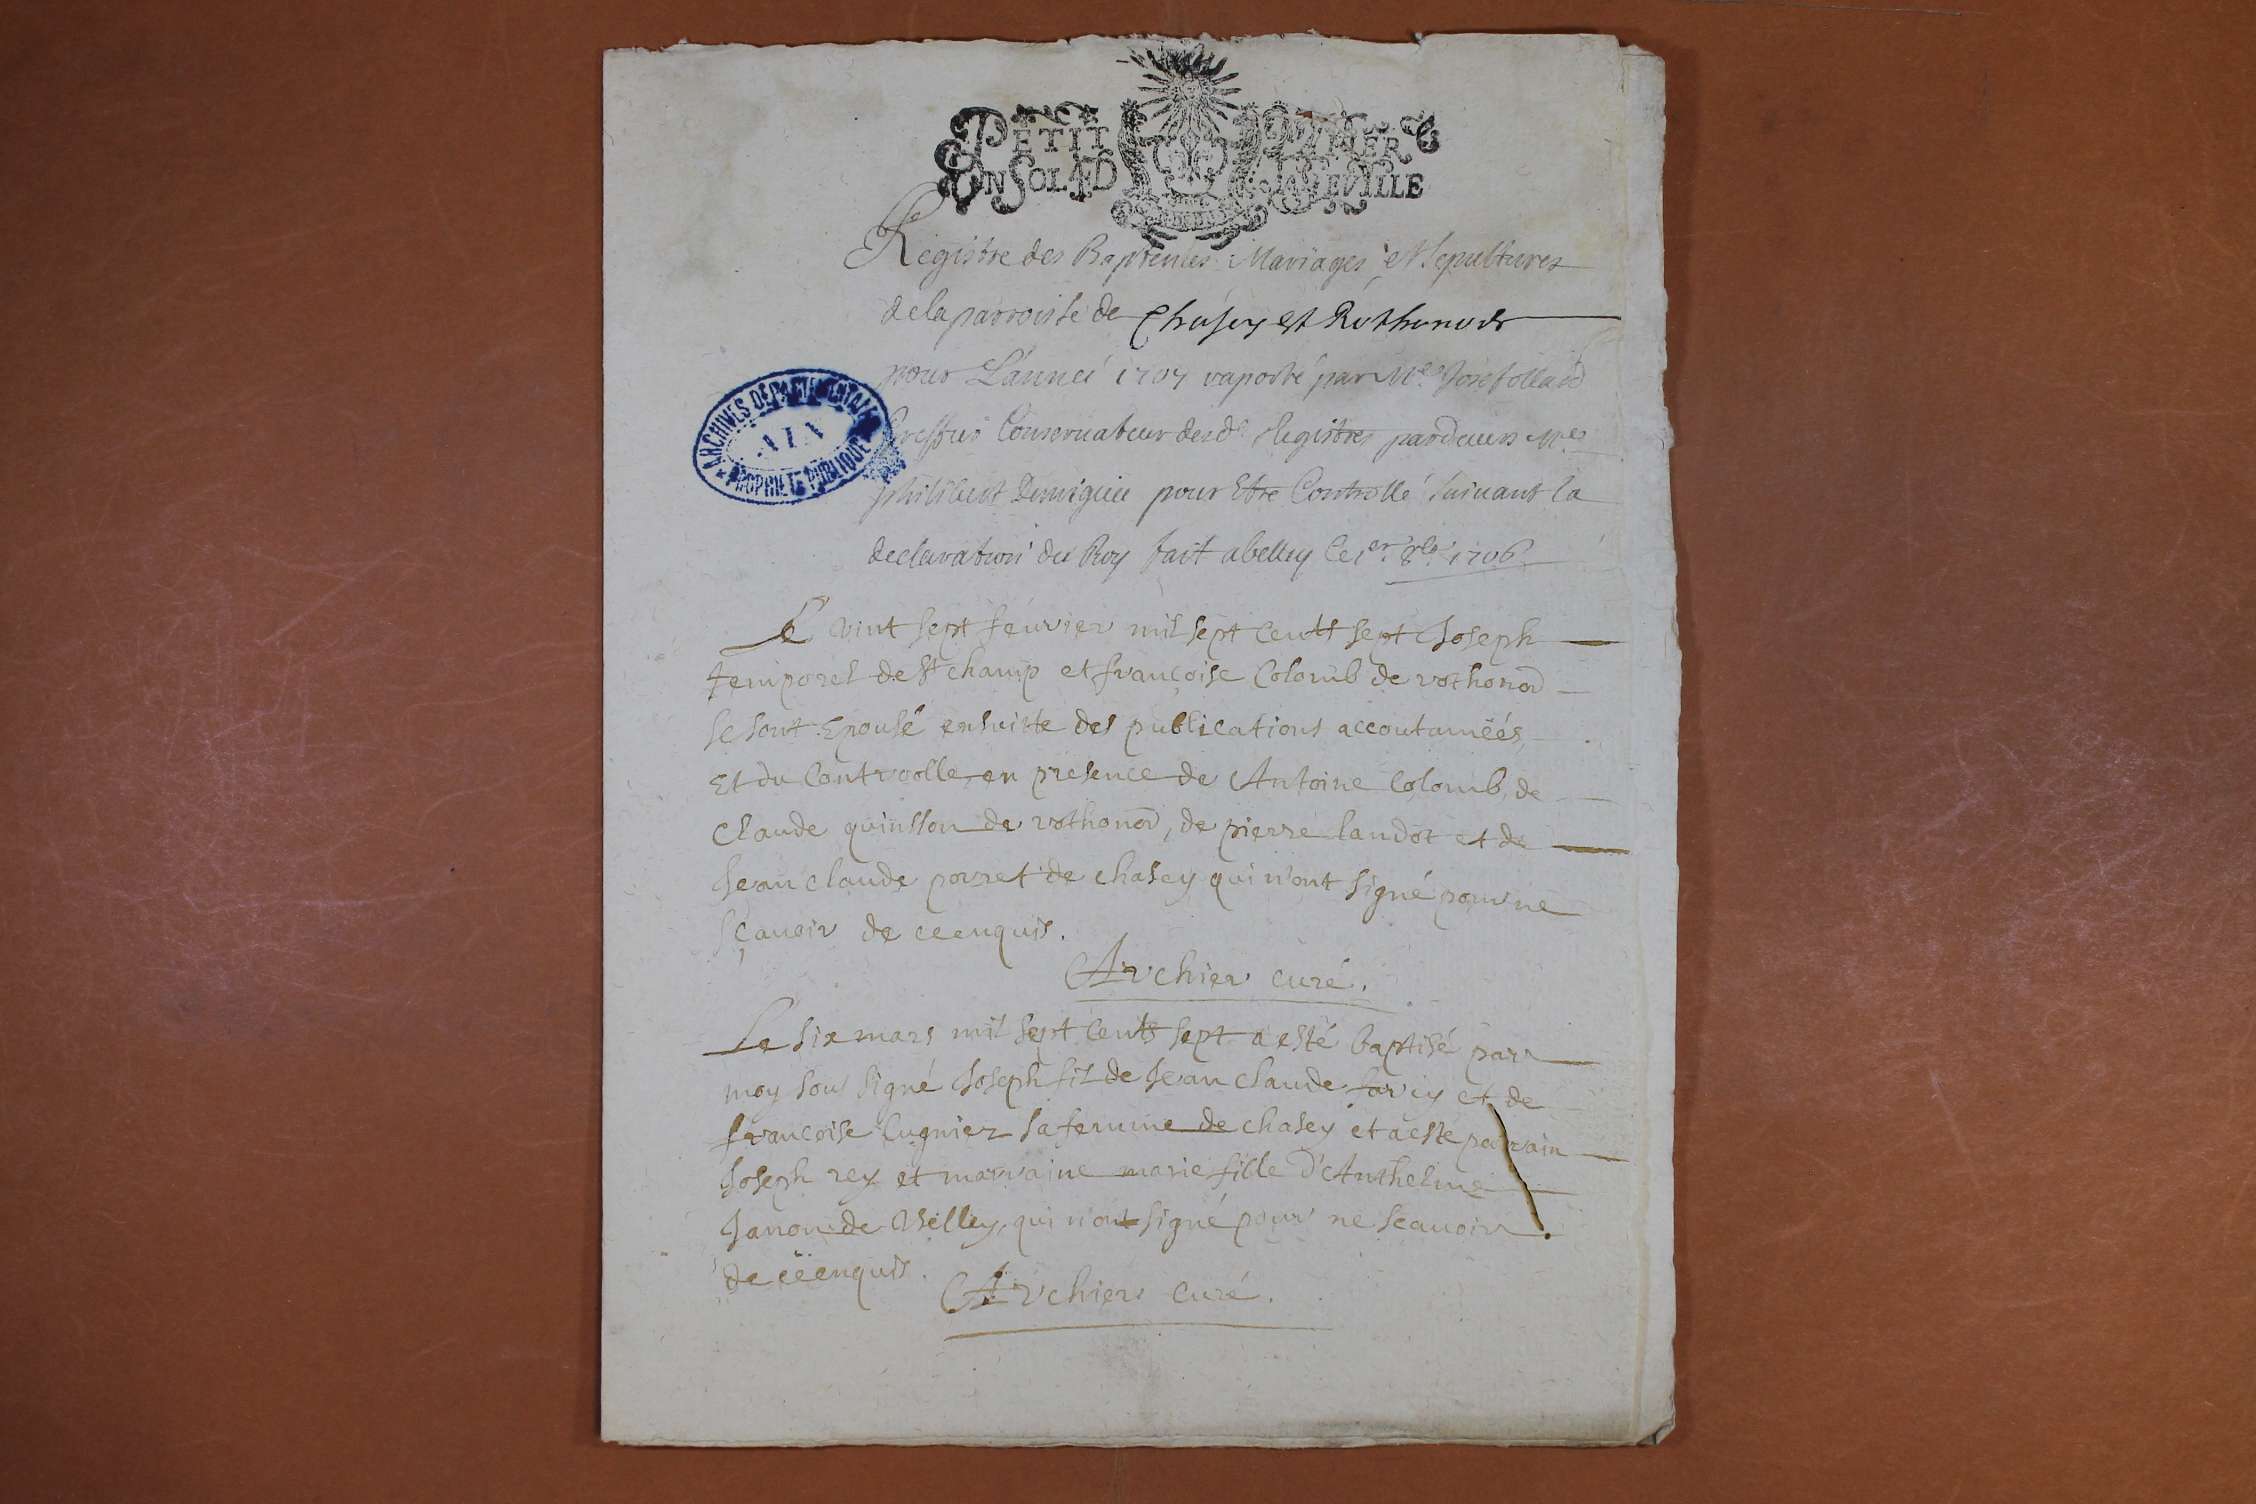 PETIT PAPIER
UN SOL 4 D LA FEUILLE
Registre des Baptemes Mariages et Sepultures
de la parroisse de Chasey et Rothonod
pour L'année 1707 raporté par Me
Conservateur desd. Registres pardeuers Me
philibert pour Etre Controllé suiuant la
declaration du Roy fait a belley le 1er 8bre 1706
ARCHIVES DEPARTEMENTALES
AIN
PROPRIETE PUBLIQUE
Le vint sept feurier mil sept cents sept Joseph
temporel de St champ et françoise Colomb de rothonod
se sont Epousé ensuitte des publications accoutumëés,
Et du Controolle, en presence de Antoine Colomb, de
Claude quinsson de rothonod, de pierre landot et de
Jean claude porret de chasey qui n'ont signé pour ne
sçauoir de ce enquis.
Archier curé.
Le six mars mil sept cents sept a esté baptisé par
moy sous signé Joseph fils de Jean claude farcy et de
françoise Cugnier sa femme de chasey et a este parrain
Joseph rey et marraine marie fille d'Anthelme
Janon de Veilley, qui n'ont signé pour ne scauoir
de ce enquis.
Archier curé.